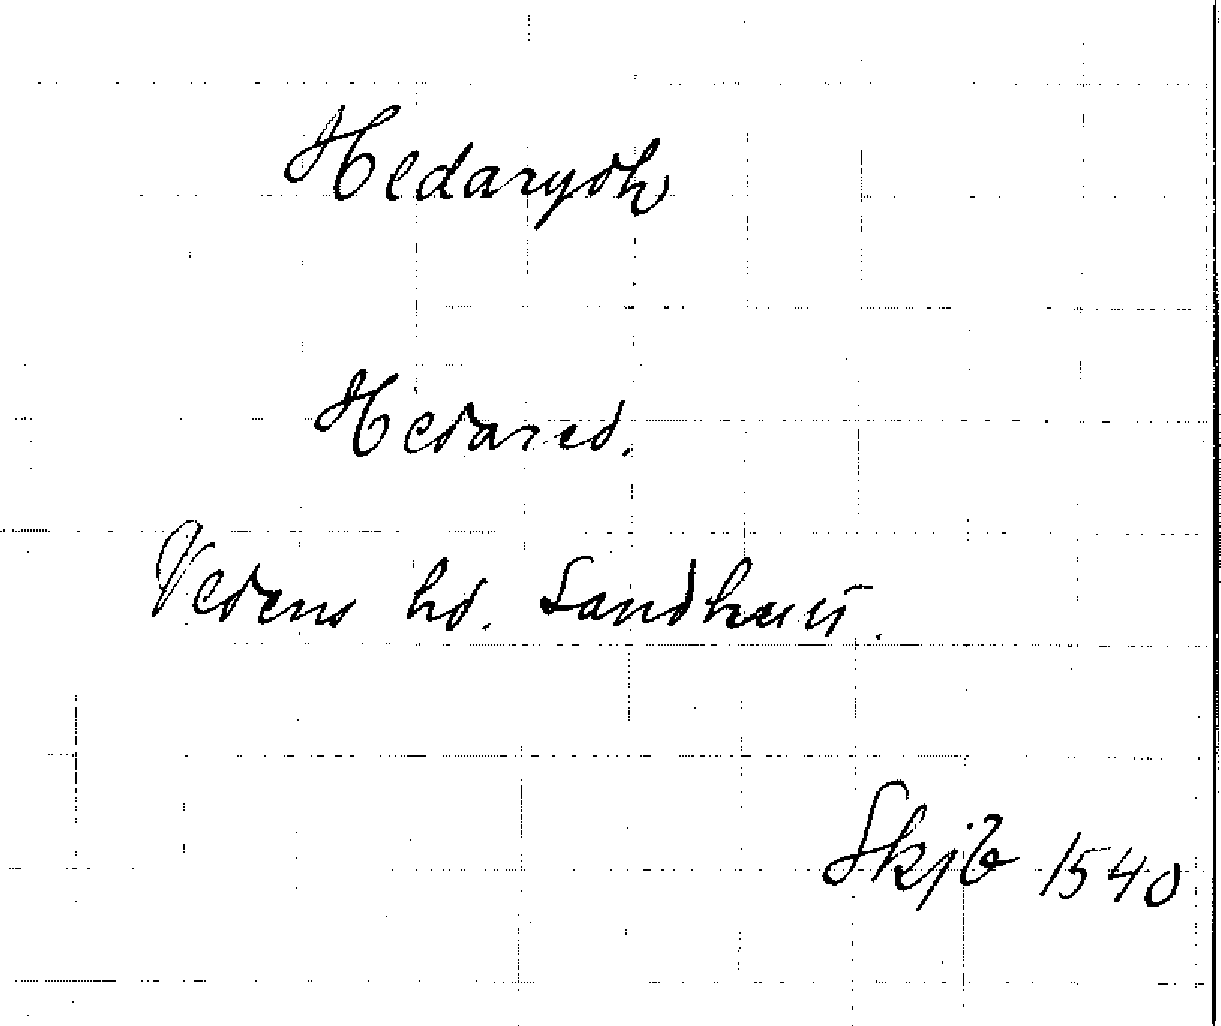 Hedarydh
Hedared.
Vedens hd. Sandhult.
Skjb 1540